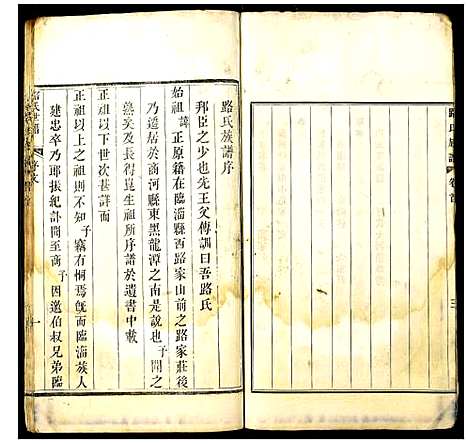 路氏族譜 卷首
三
路氏族譜序
邦臣之少也先王父傳訓曰吾路氏
始祖諱正原籍在臨淄縣西路家山前之路家莊後
乃遷居於商河縣東黑龍潭之南是說也子
熟矣及長得崑生祖所序譜於遺書中載
正祖以下世次甚詳而
正祖以上之祖則不知子竊有恫焉旣而臨淄族人
建忠卒乃耶振紀訃聞至商子因邀伯叔兄弟臨
一